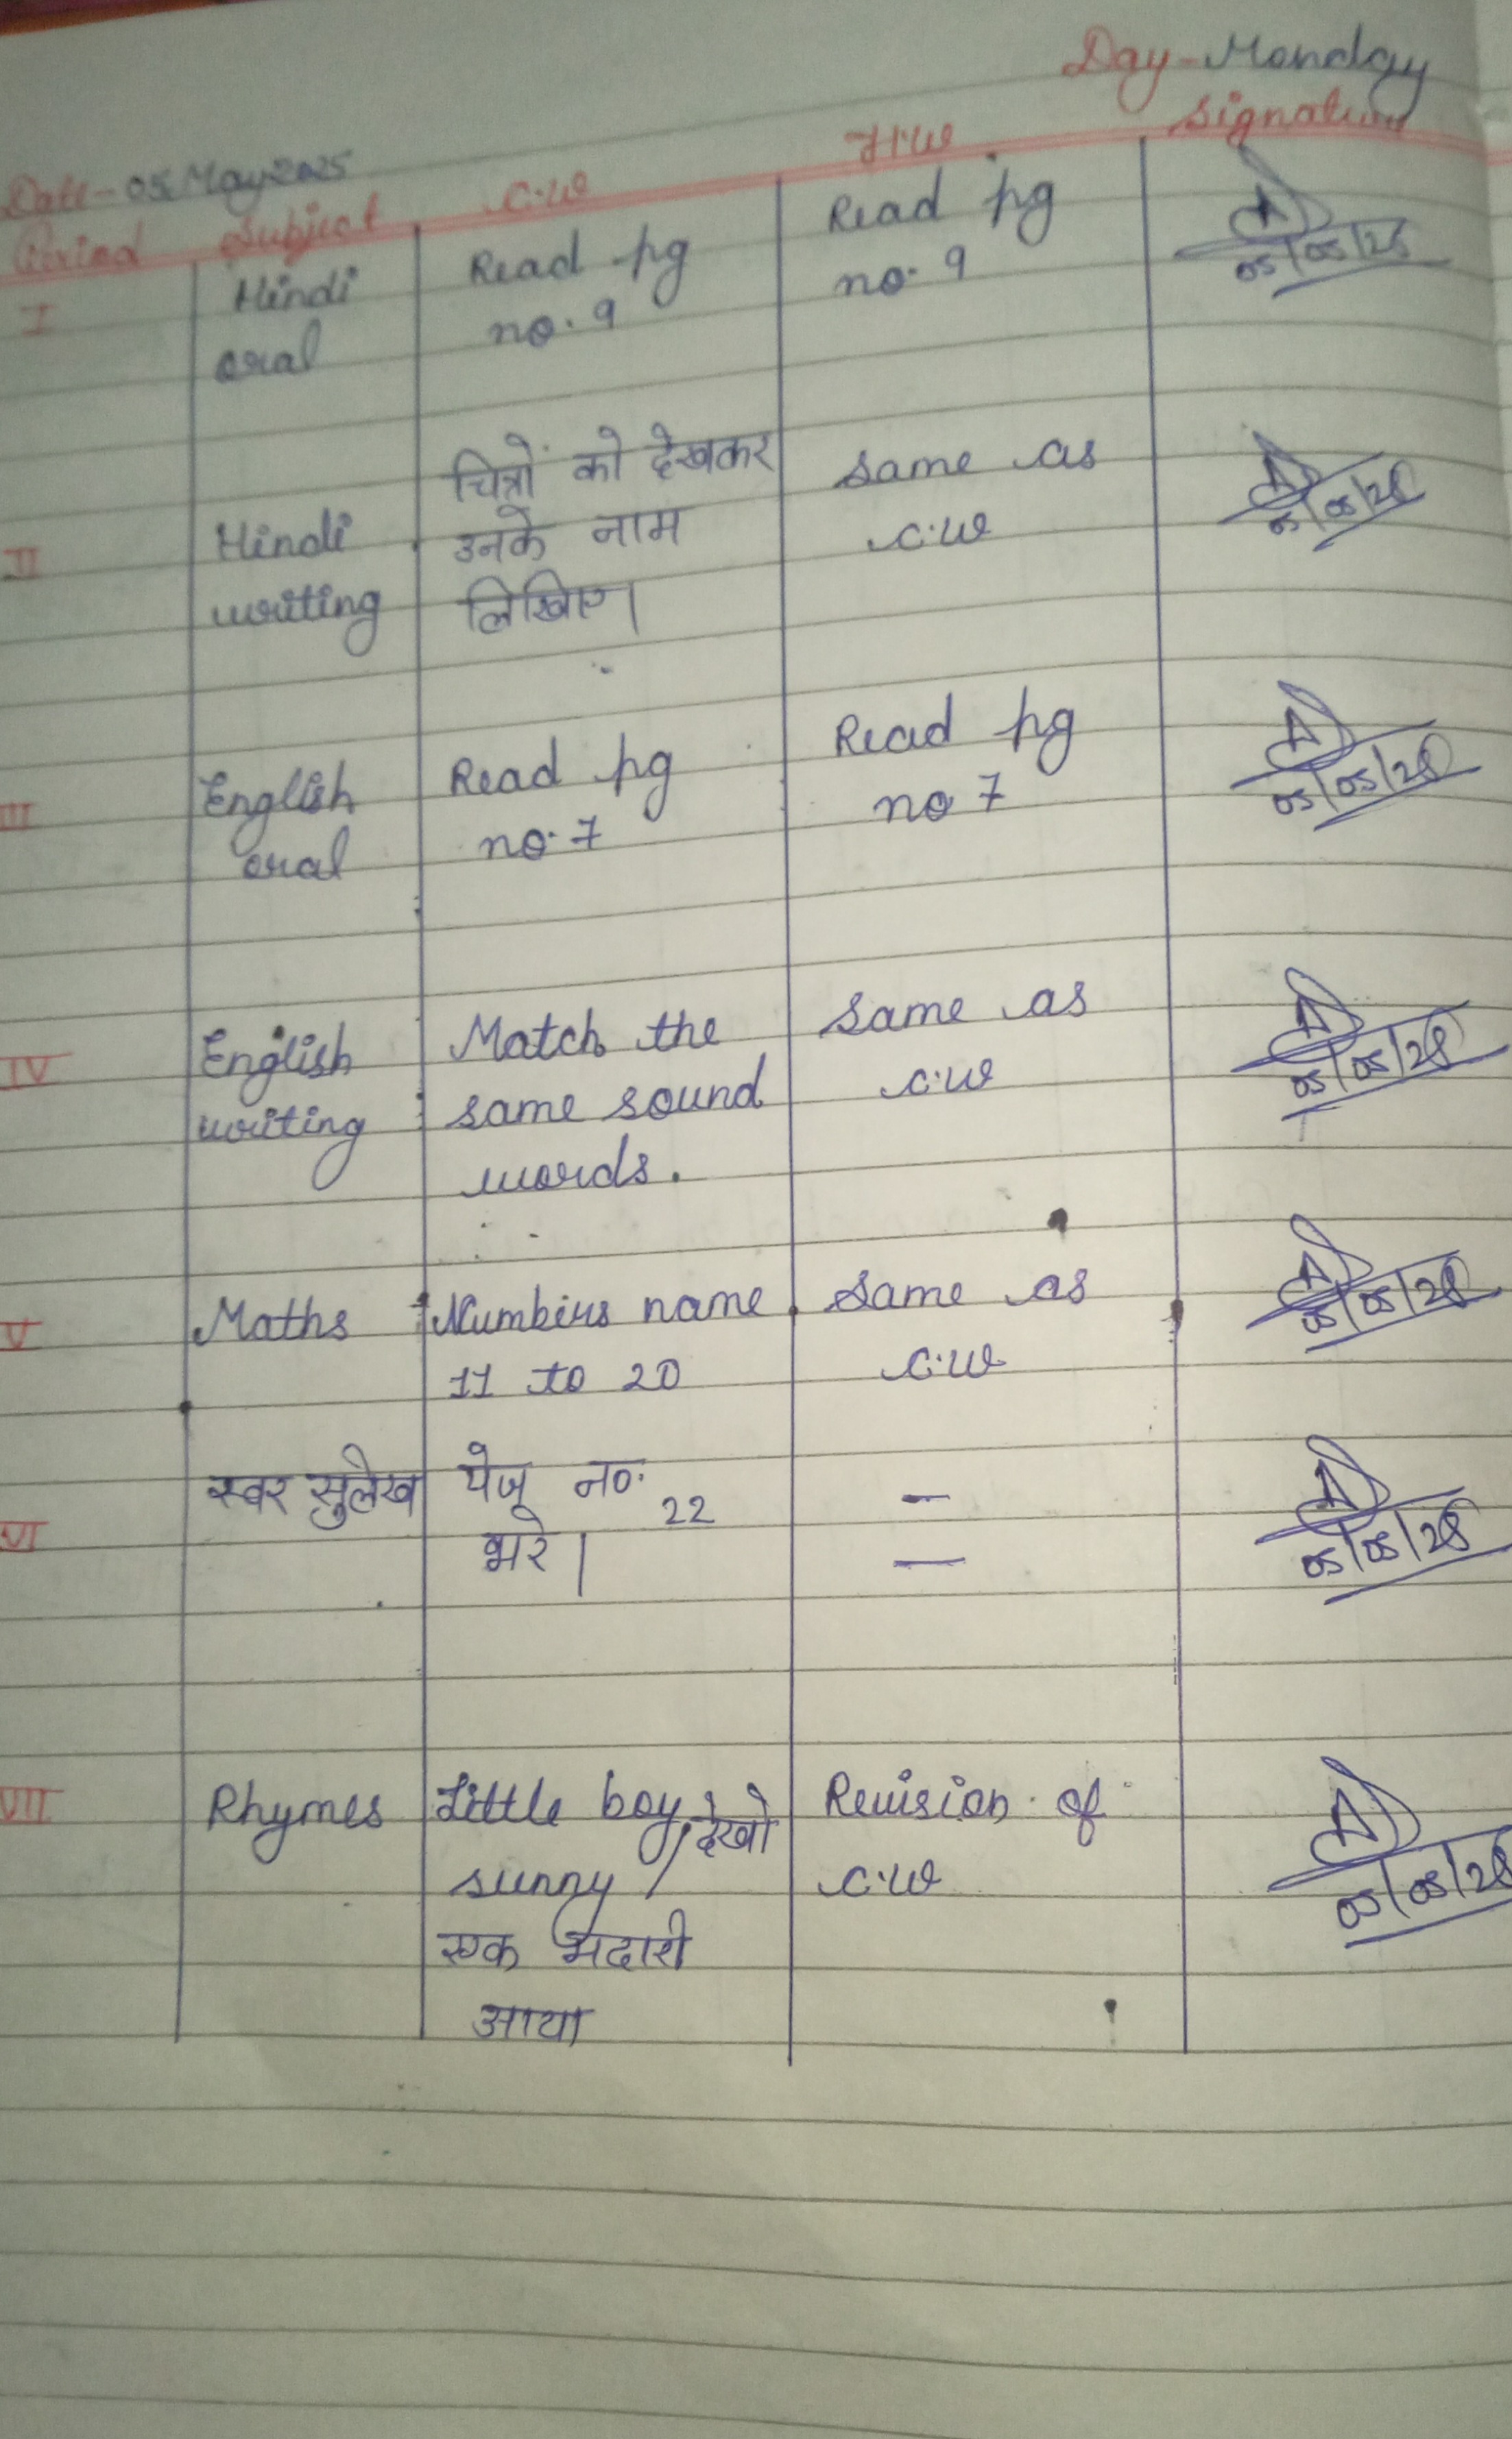 Day - Monday
Date - 05 May 2025
Period Subject C.W H.W Signature
I Hindi Read pg Read pg
oral no. 9 no. 9
05/05/25
चित्रों को देखकर same as
II Hindi उनके नाम C.W
writing लिखिए।
05/05/25
III English Read pg Read pg
oral no. 7 no 7
05/05/25
IV English Match the same as
writing same sound C.W
words.
05/05/25
V Maths Numbers name same as
11 to 20 C.W
05/05/25
VI स्वर सुलेख पेज नं. 22 —
भरे। —
05/05/25
VII Rhymes Little boy, देखो Revision of
sunny / C.W
एक मदारी
आया
05/05/25